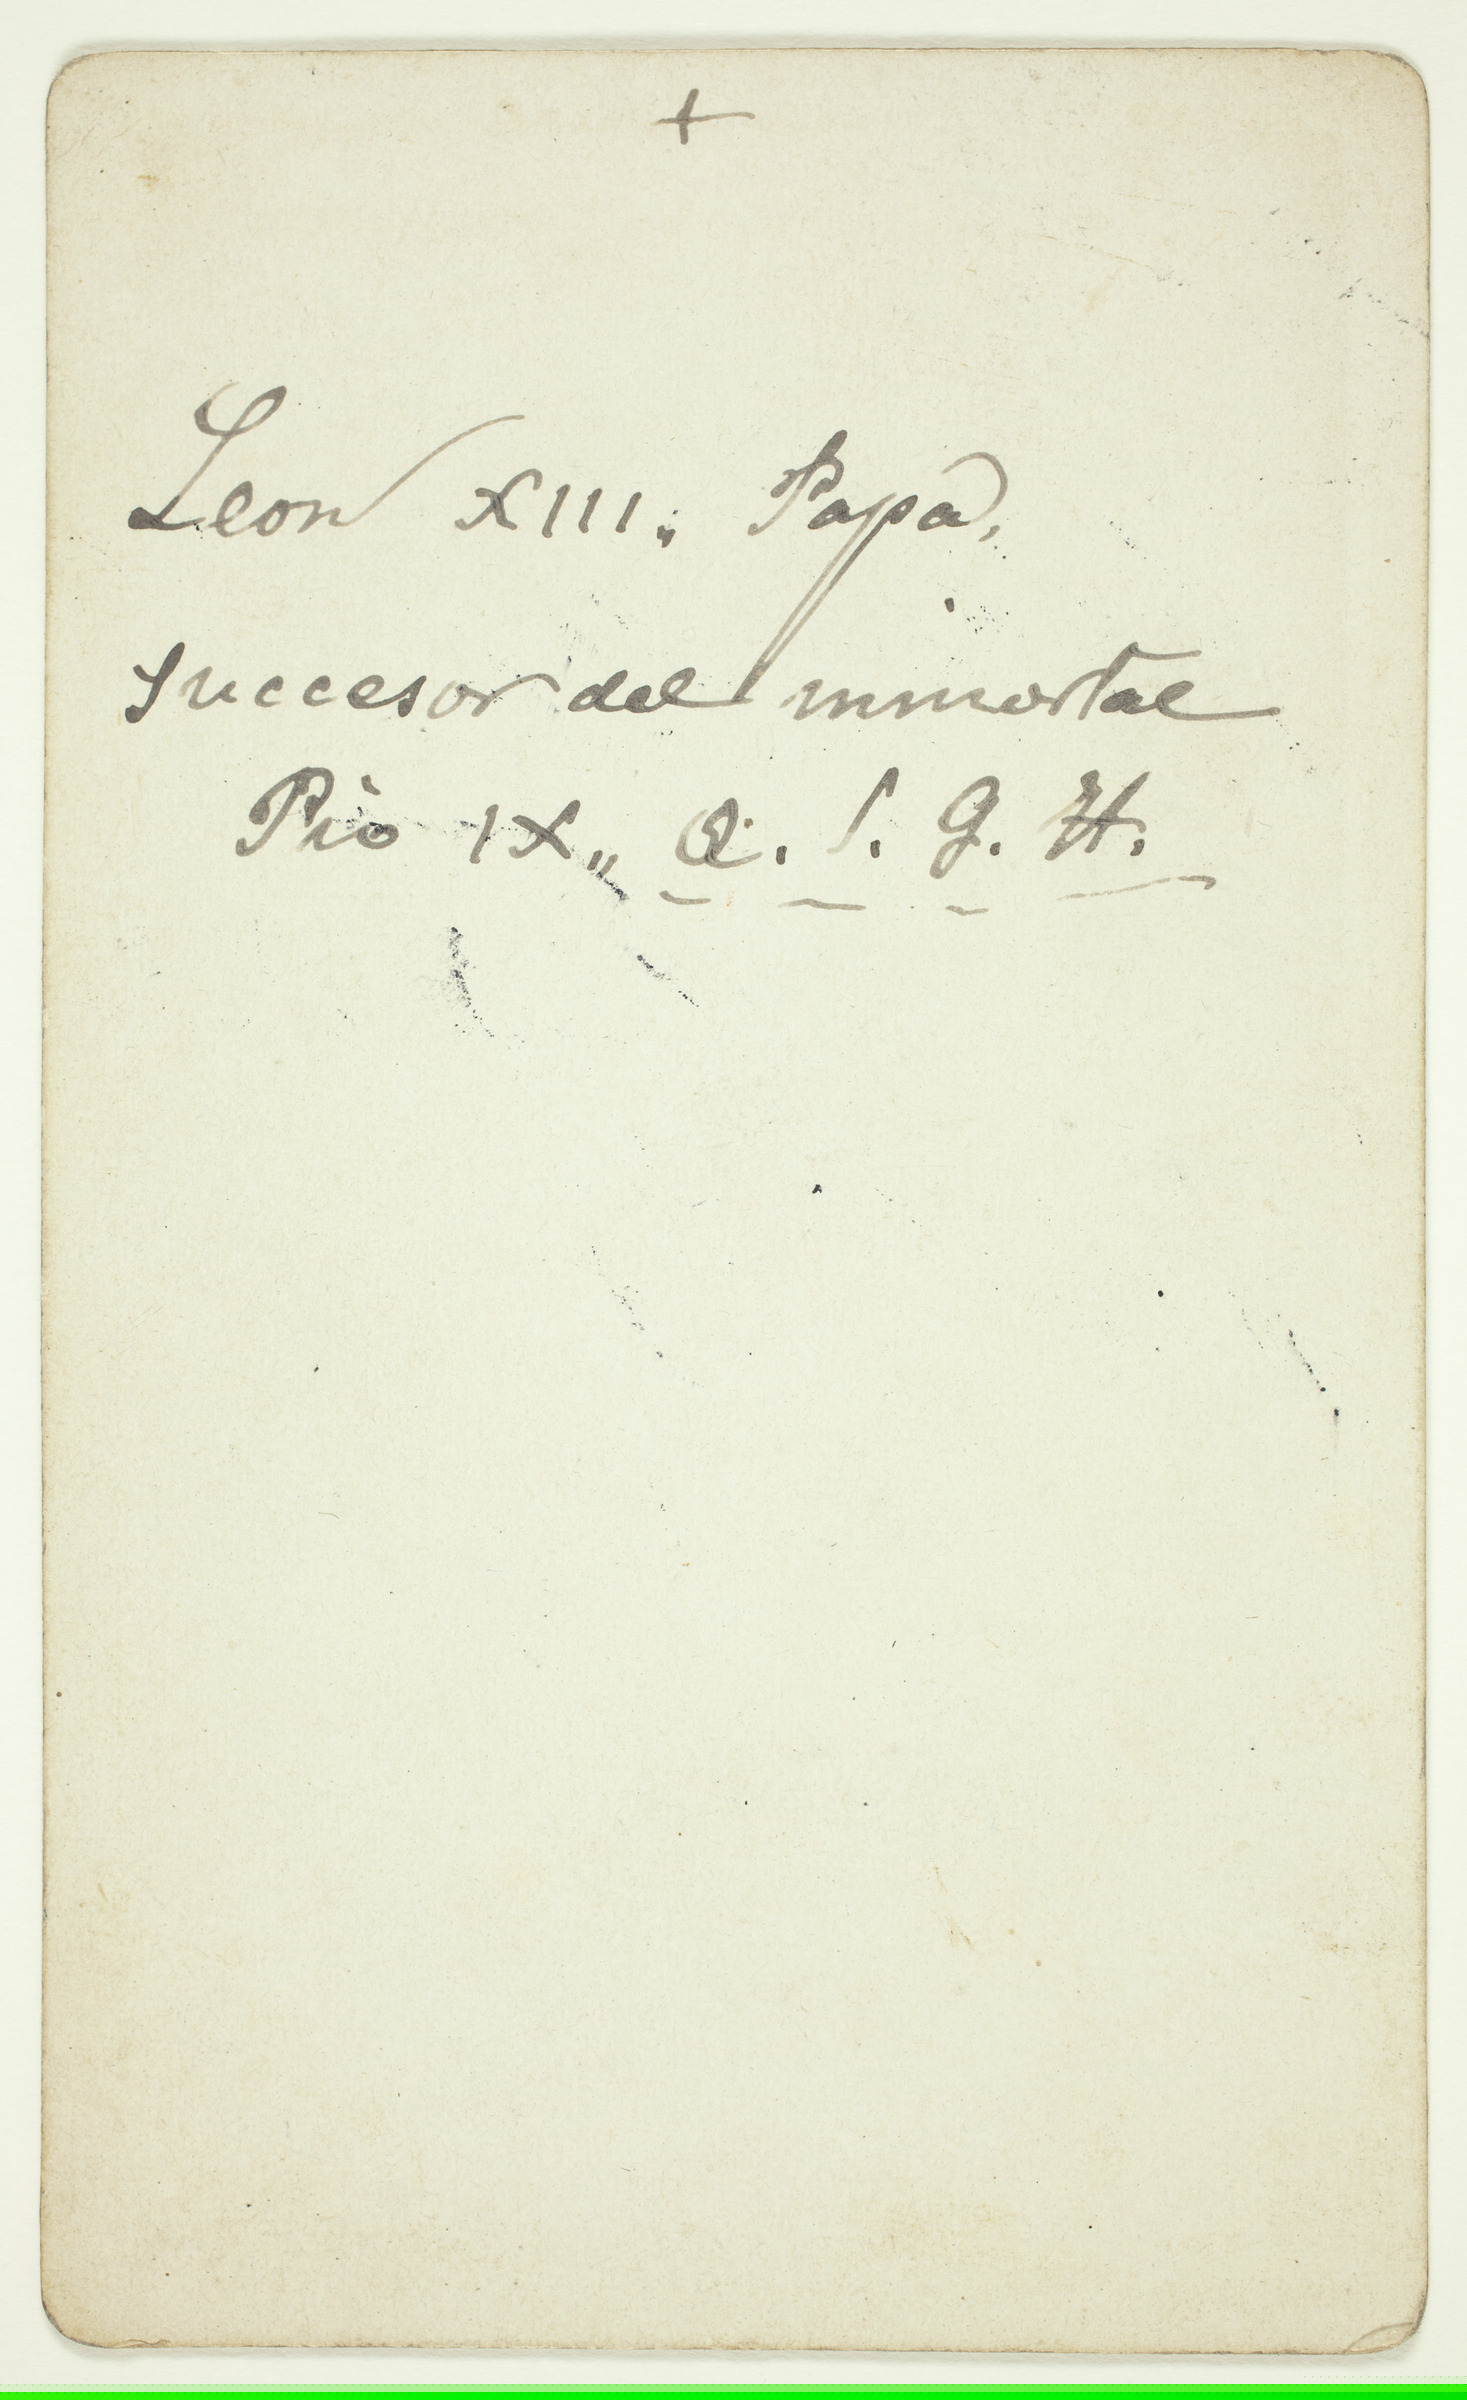 +
Leon XIII„ Papa,
Succesor del inmortal
Pio IX„ Q. S. G. H.